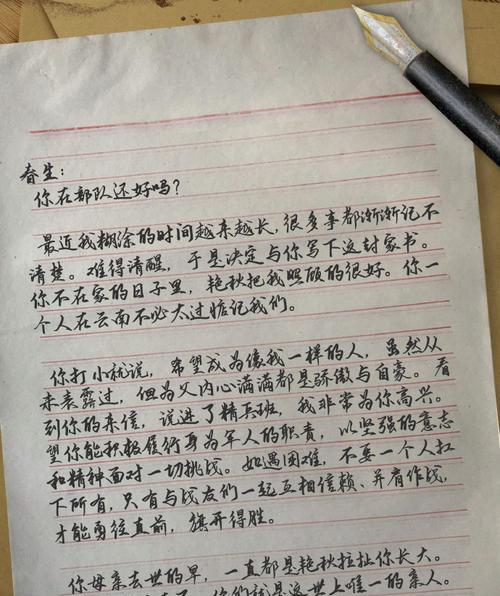 春生：
你在部队还好吗？
最近我糊涂的时间越来越长，很多事都渐渐记不
清楚。难得清醒，于是决定与你写下这封家书。
你不在家的日子里，艳秋把我照顾的很好。你一
个人在云南不必太过惦记我们。
你打小就说，希望成为像我一样的人，虽然从
未表露过，但为父内心满满都是骄傲与自豪。看
到你的来信，说进了精兵班，我非常为你高兴。
望你能积极履行身为军人的职责，以坚强的意志
和精神面对一切挑战。如遇困难，不要一个人扛
下所有，只有与战友们一起互相信赖、并肩作战，
才能勇往直前，旗开得胜。
你母亲去世的早，一直都是艳秋拉扯你长大。
你们就是这世上唯一的亲人。